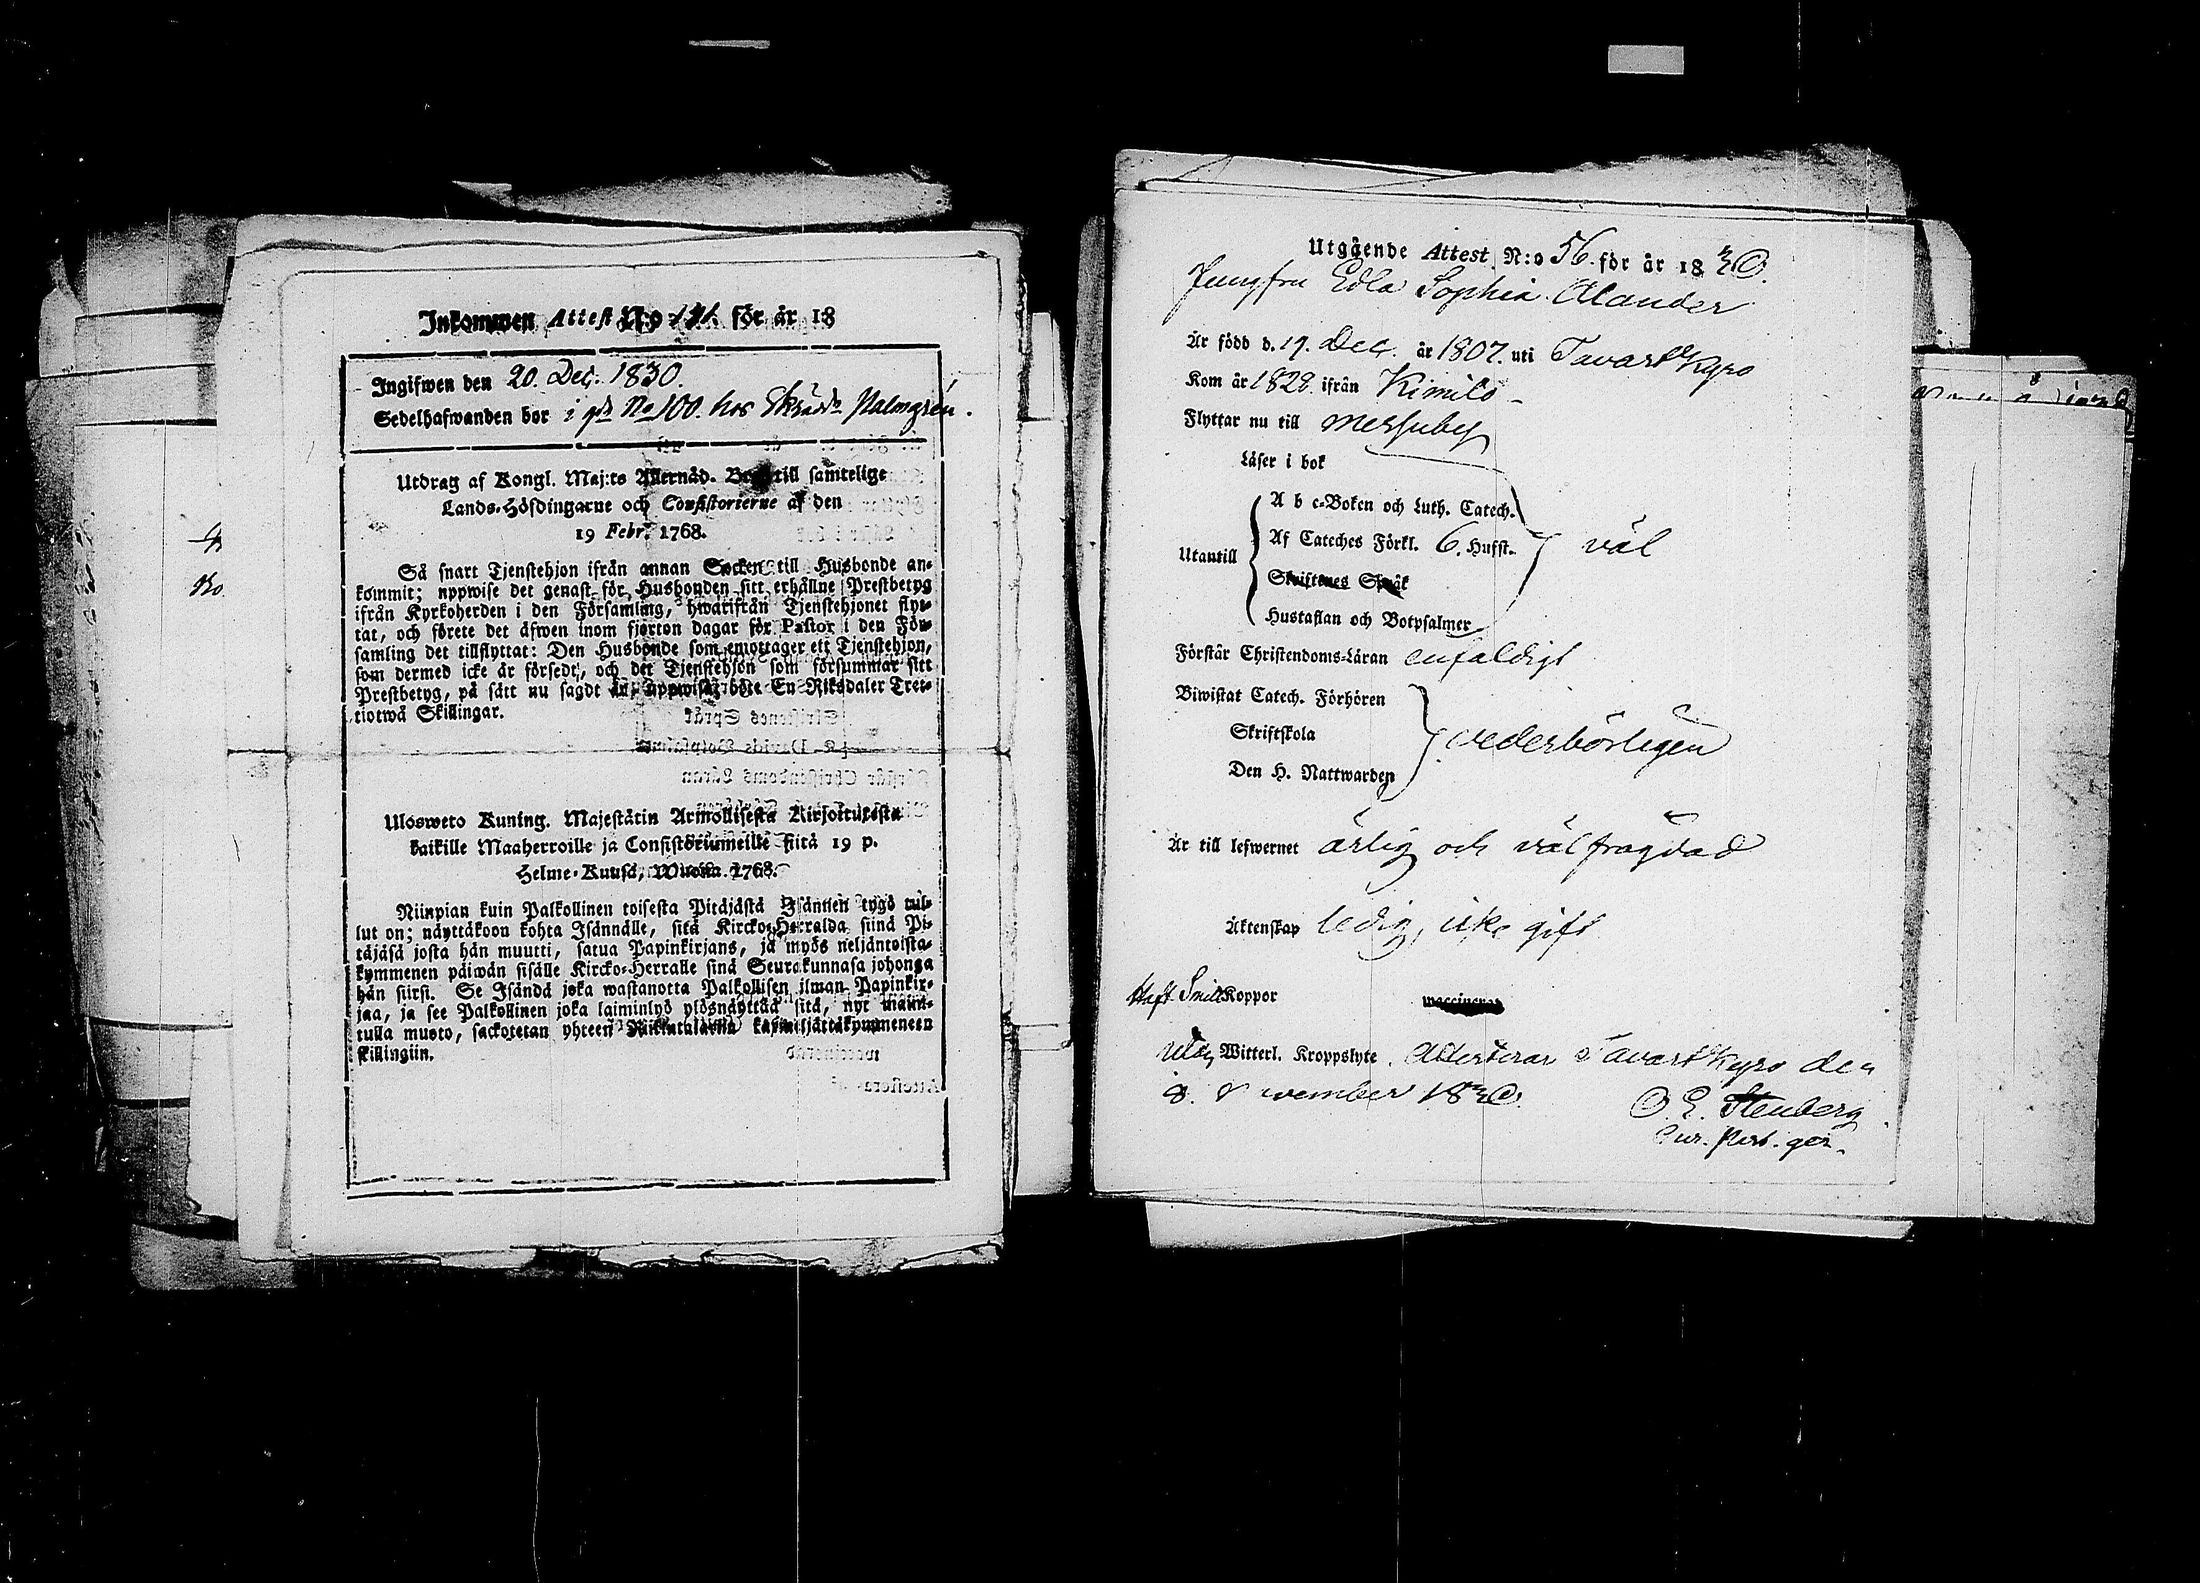 Inkommen Attest N:o 191. för år 18
Ingifwen den 20. Dec. 1830.
Sedelhafwanden bor i gd No 100. hos Skrädd. Palmgrén.
Utdrag af Kongl. Maj:ts Allernåd. Bref till samtelige
Lands-Höfdingarne och Consistorierne af den
19 Febr. 1768.
Så snart Tjenstehjon ifrån annan Socken till Husbonde an-
kommit; uppwise det genast för Husbonden sitt erhållne Prestbetyg
ifrån Kyrkoherden i den Församling, hwarifrån Tjenstehjonet flyt-
tat, och förete det äfwen inom fjorton dagar för Pastor i den För-
samling det tillflyttat: Den Husbonde som emottager ett Tjenstehjon,
som dermed icke är försedt, och det Tjenstehjon som försummar sitt
Prestbetyg, på sätt nu sagdt är, uppwisa, böte En Riksdaler Tret-
tiotwå Skillingar.
Ulosweto Kuning. Majestätin Armollisesta Kirjoituxesta
kaikille Maaherroille ja Consistoriumeille siitä 19 p.
Helme-Kuusa, Wuonna 1768.
Niinpian kuin Palkollinen toisesta Pitäjästä Isännen tygö tul-
lut on; näyttäkoon kohta Isännälle, sitä Kircko-Herralda siinä Pi-
täjäsä josta hän muutti, satua Papinkirjans, ja myös neljäntoista-
kymmenen päiwän sisälle Kircko-Herralle sinä Seurakunnasa johonga
hän siirsi. Se Isändä joka wastanotta Palkollisen ilman Papinkir-
jaa, ja see Palkollinen joka laiminlyö ylösnäyttää sitä, nyt maini-
tulla muoto, sackotetan yhteen Rikkntalariin kaxineljättäkymmeneen
skillingiin.
Utgående Attest N:o 56. för år 1830.
Jungfru Edla Sophia Alander
Är född d. 19. Dec. år 1807. uti Tavastkyro
Kom år 1828. ifrån Kimito
Flyttar nu till Messuby
Läser i bok
A b c-Boken och Luth. Catech.
Utantill Af Cateches Förkl. 6. Hufst. väl
Skriftenes Språk
Hustaflan och Botpsalmer
Förstår Christendoms-Läran enfaldigt
Biwistat Catech. Förhören
Skriftskola vederbörligen
Den H. Nattwarden
Är till lefwernet ärlig och välfrägdad
Äktenskap ledig, icke gift
Haft Smittkoppor waccinerad
Utan Witterl. Kroppslyte. Attesterar Tavastkyro den
8. November 1830.
O. E. Stenberg
Cur. Past. ger.